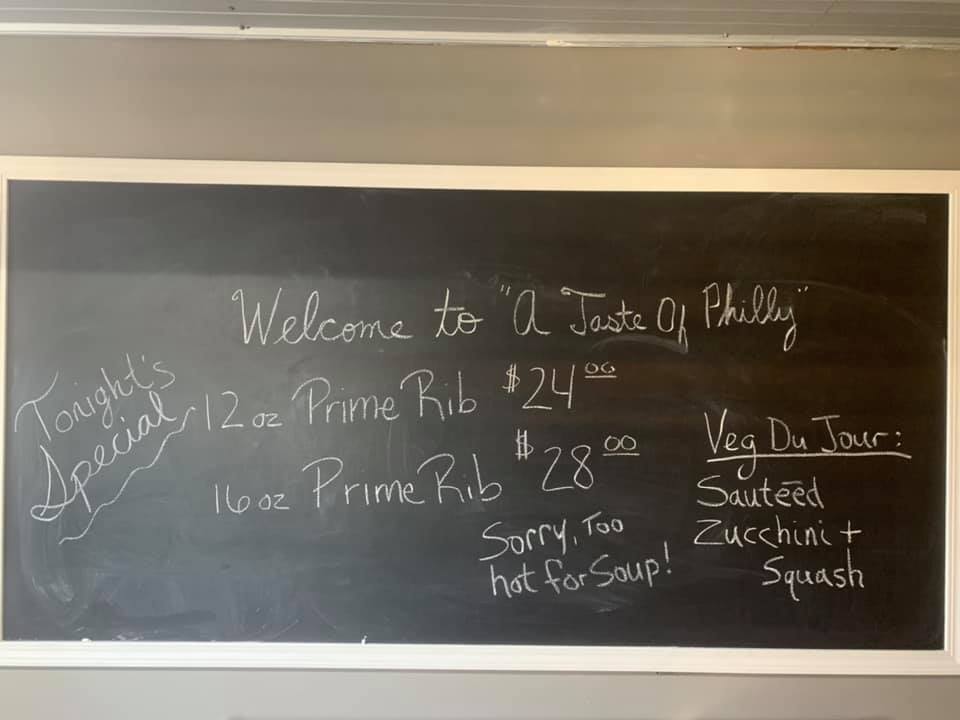 Welcome to "A Taste Of Philly"
Tonight's
Special
12 oz Prime Rib $24.00
16 oz Prime Rib $28.00
Sorry, Too
hot for Soup!
Veg Du Jour:
Sauteēd
Zucchini +
Squash